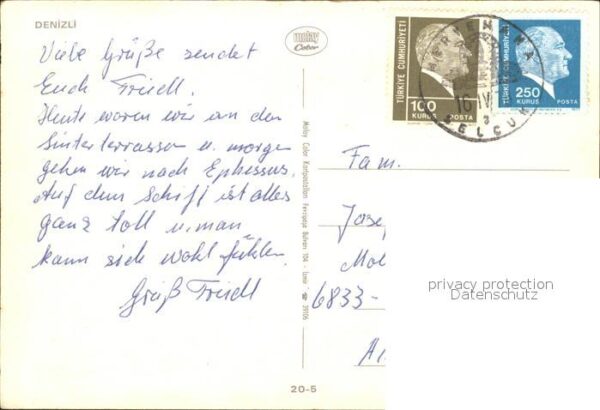 DENİZLİ
Viele Grüße sendet
Euch Friedl.
Heute waren wir an den
Sinterterrassen u. morgen
gehen wir nach Ephessus.
Auf dem Schiff ist alles
ganz toll u. man
kann sich wohl fühlen.
Gruß Friedl
molay
Color
Molay Color Kartpostalları Fevzipaşa Bulvarı 104 - İzmir 39106
20-5
TÜRKİYE CUMHURİYETİ
100
KURUŞ POSTA
TÜRKİYE CUMHURİYETİ
250
KURUŞ POSTA
MERYEMANA
16 IV
SELÇUK
Fam.
Josef
6833-
privacy protection
Datenschutz